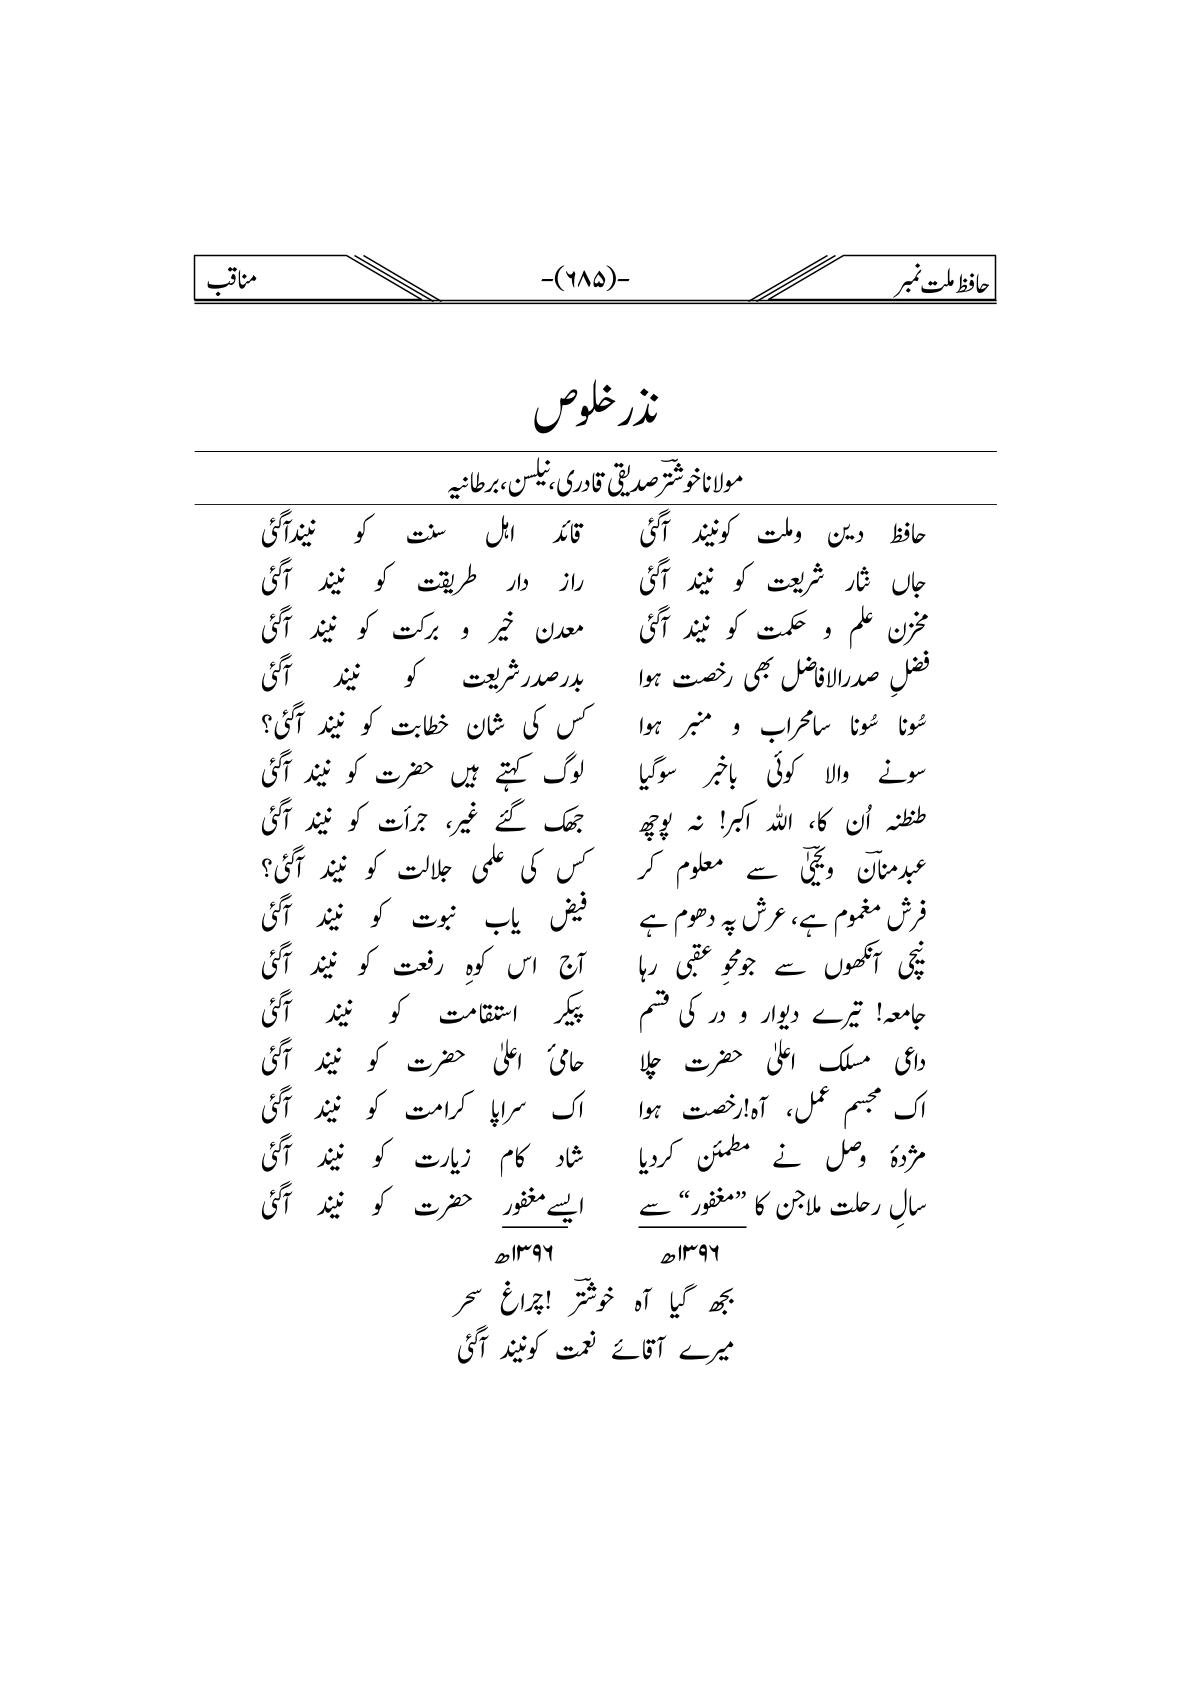 حافظ ملت نمبر -(۶۸۵)- مناقب
نذر خلوص
مولانا خوشترؔ صدیقی قادری، نیلسن، برطانیہ
حافظ دین وملت کونیند آگئی قائد اہل سنت کو نیندآگئی
جاں نثار شریعت کو نیند آگئی راز دار طریقت کو نیند آگئی
مخزن علم و حکمت کو نیند آگئی معدن خیر و برکت کو نیند آگئی
فضلِ صدرالافاضل بھی رخصت ہوا بدرصدرشریعت کو نیند آگئی
سُونا سُونا سامحراب و منبر ہوا کس کی شان خطابت کو نیند آگئی؟
سونے والا کوئی باخبر سوگیا لوگ کہتے ہیں حضرت کو نیند آگئی
طنطنہ اُن کا، اللہ اکبر! نہ پوچھ جھک گئے غیر، جرأت کو نیند آگئی
عبدمنانؔ ویحییٰؔ سے معلوم کر کس کی علمی جلالت کو نیند آگئی؟
فرش مغموم ہے، عرش پہ دھوم ہے فیض یاب نبوت کو نیند آگئی
نیچی آنکھوں سے جومحوِ عقبی رہا آج اس کوہِ رفعت کو نیند آگئی
جامعہ! تیرے دیوار و در کی قسم پیکر استقامت کو نیند آگئی
داعی مسلک اعلیٰ حضرت چلا حامیٔ اعلیٰ حضرت کو نیند آگئی
اک مجسم عمل، آہ!رخصت ہوا اک سراپا کرامت کو نیند آگئی
مژدۂ وصل نے مطمئن کردیا شاد کام زیارت کو نیند آگئی
سالِ رحلت ملاجن کا ”مغفور“ سے ایسے مغفور حضرت کو نیند آگئی
۱۳۹۶ھ ۱۳۹۶ھ
بجھ گیا آہ خوشترؔ !چراغ سحر
میرے آقائے نعمت کونیند آگئی